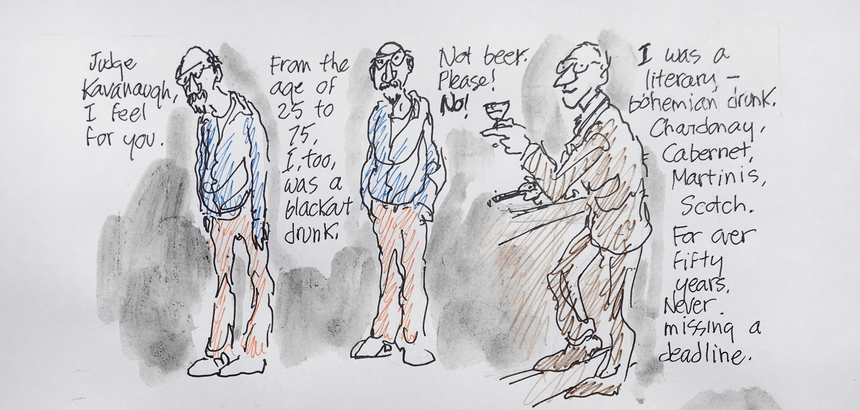 Judge
Kavanaugh,
I feel
for you.
From the
age of
25 to
75,
I, too,
was a
blackout
drunk.
Not beer.
Please!
No!
I was a
literary -
bohemian drunk.
Chardonay,
Cabernet,
Martinis,
Scotch.
For over
fifty
years.
Never
missing a
deadline.